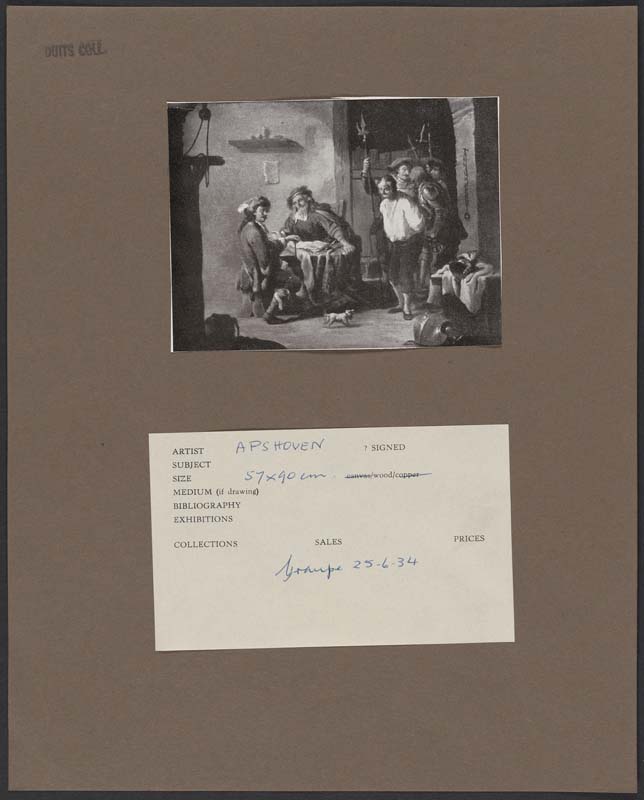 DUITS COLL.
ARTIST APSHOVEN ? SIGNED
SUBJECT
SIZE 57x90 cm. canvas/wood/copper
MEDIUM (if drawing)
BIBLIOGRAPHY
EXHIBITIONS
COLLECTIONS SALES PRICES
Graupe 25-6-34